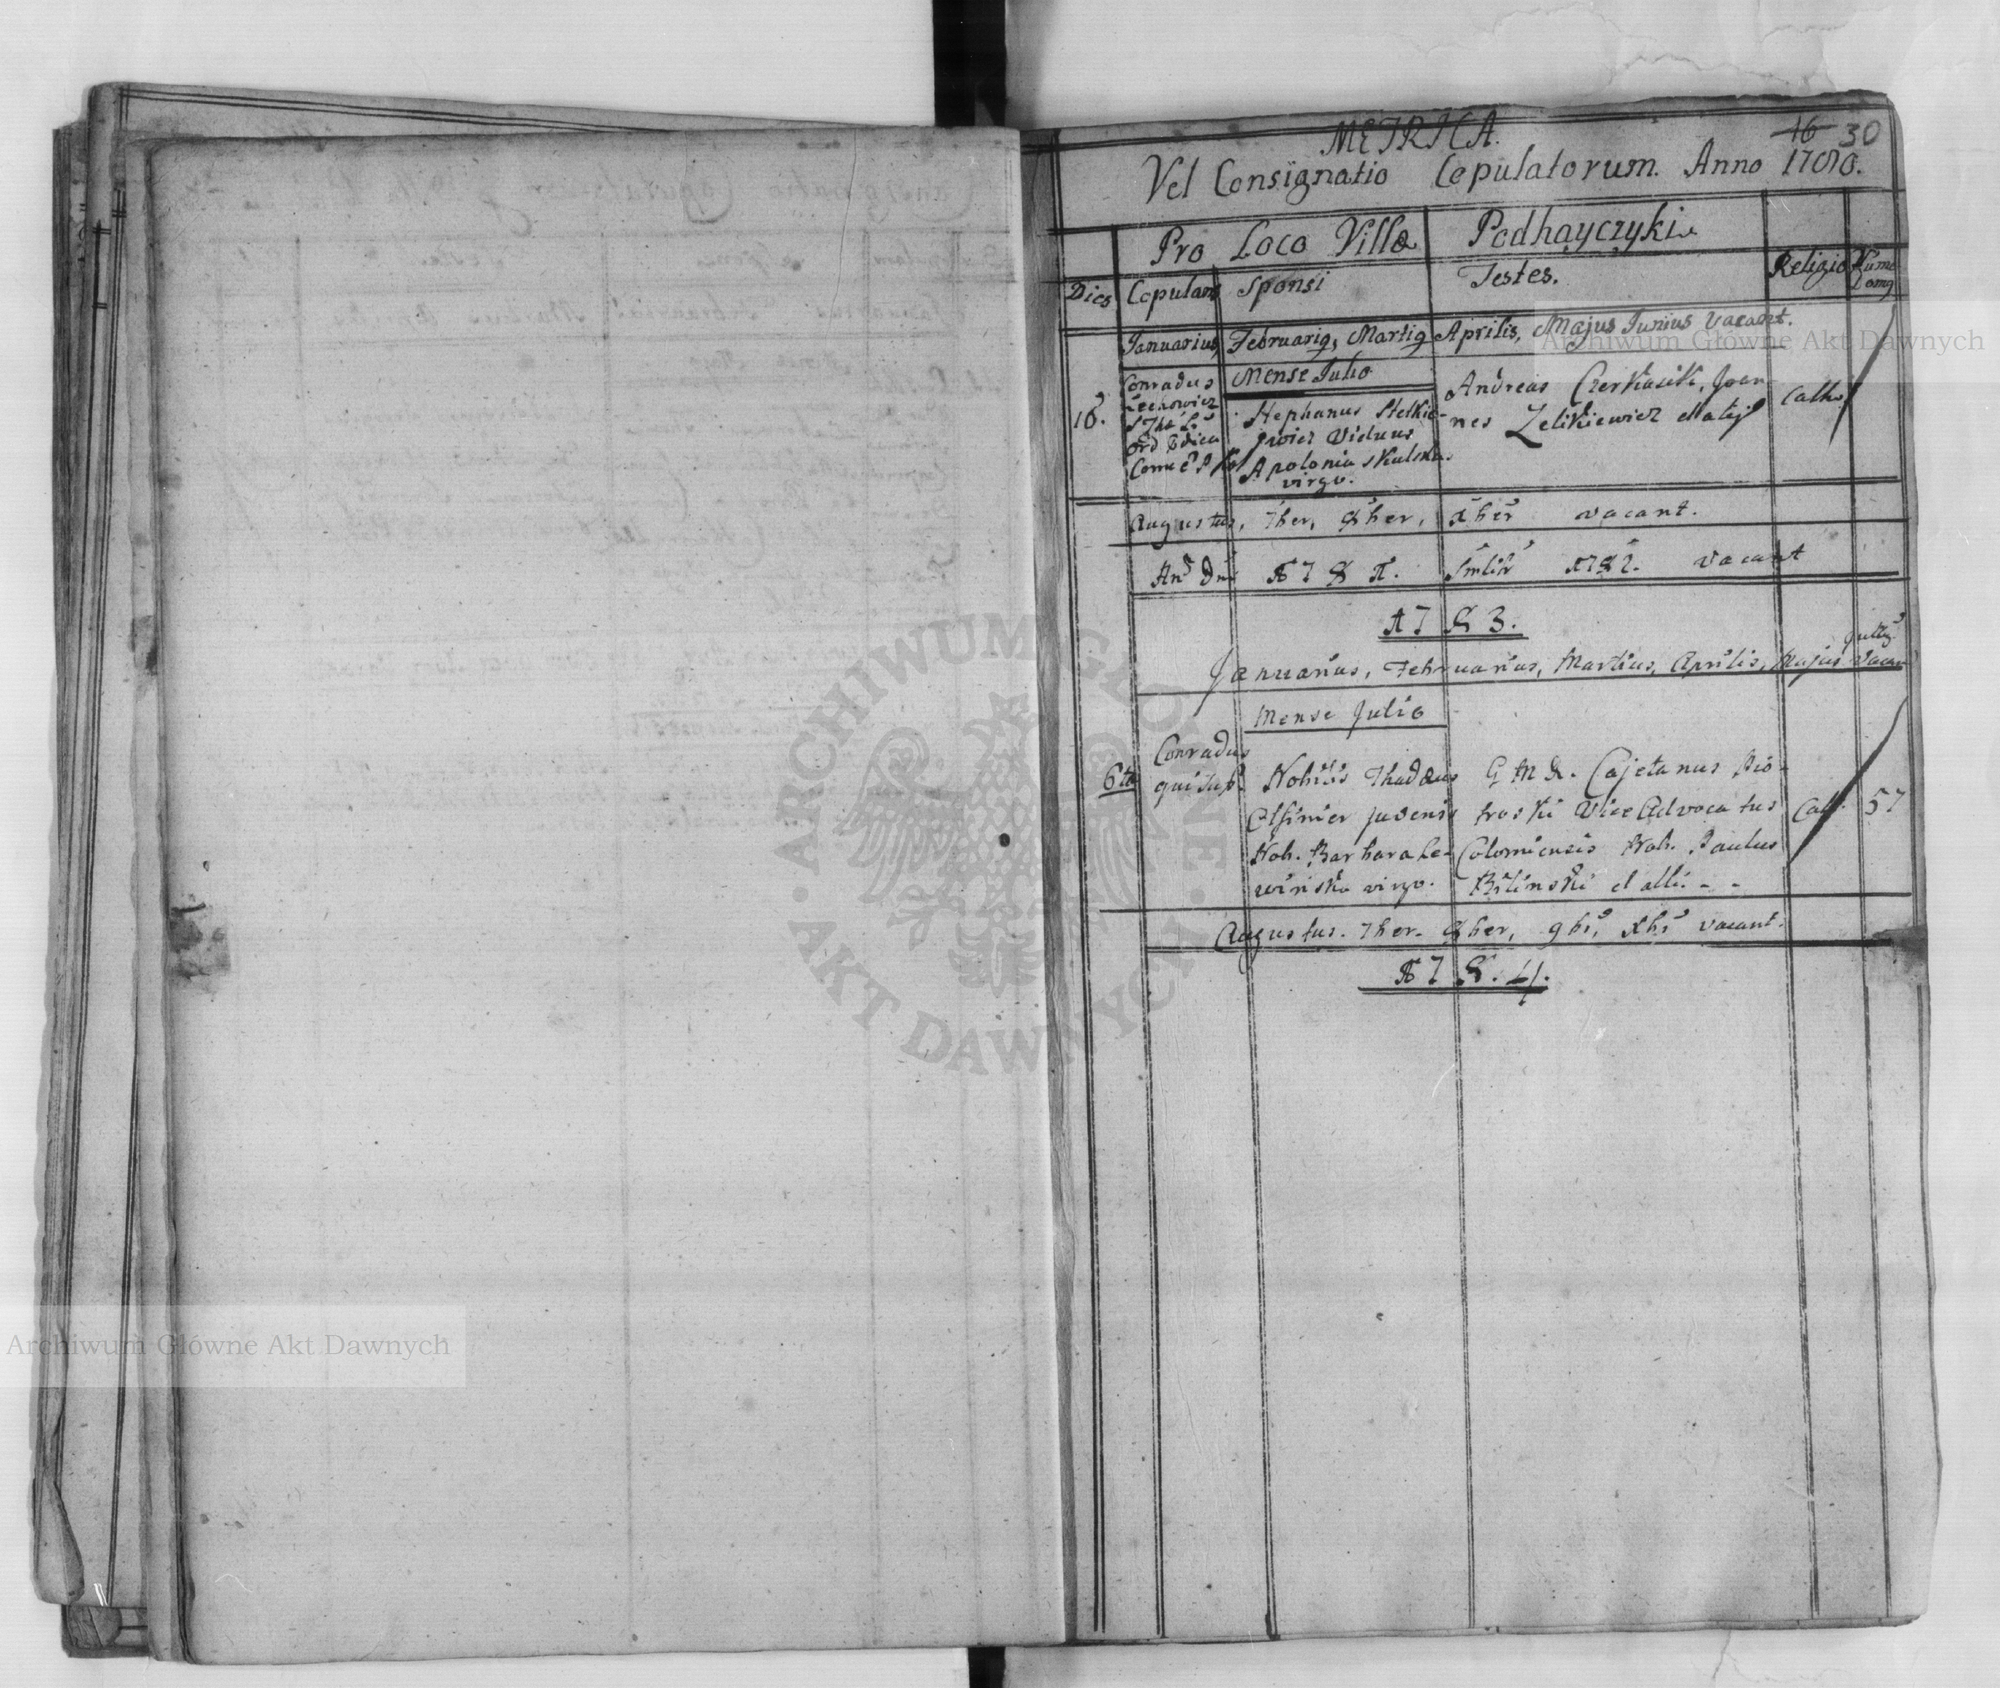 METRICA.
16 30
Vel Consignatio Copulatorum. Anno
Pro Loco Villæ Podhayczyki
Dies Copulans Sponsi Testes. Religio Nume Domq
Januarius, Februariq, Martiq Aprilis, Majus Junius vacant.
Mense Julio
16.
Conradus
Ord
Stephanus Stetkie-
wicz Viduus
Apolonia Skulska
virgo.
Andreas Czerkasik, Joan-
nes Zelikiewicz
Cath.
Augustus, 7ber, 8ber, Xber vacant.
An̄ Dni 1781. 1782. vacant
1783.
Januarius, Februarius, Martius, Aprilis, Majus vacant
Mense Julio
6ta
Conradus
qui sup.
Nobilis Thadæus
juvenis
Nob. Barbara Le-
wińska virgo.
G. M. D. Cajetanus Pio-
troski Vice Advocatus
Colomiensis Nob. Paulus
Biliński et alii - -
Cath. 57
Augustus. 7ber. 8ber, 9br, Xbr vacant.
1784.
Archiwum Główne Akt Dawnych
Archiwum Główne Akt Dawnych
ARCHIWUM GŁÓWNE · AKT DAWNYCH ·